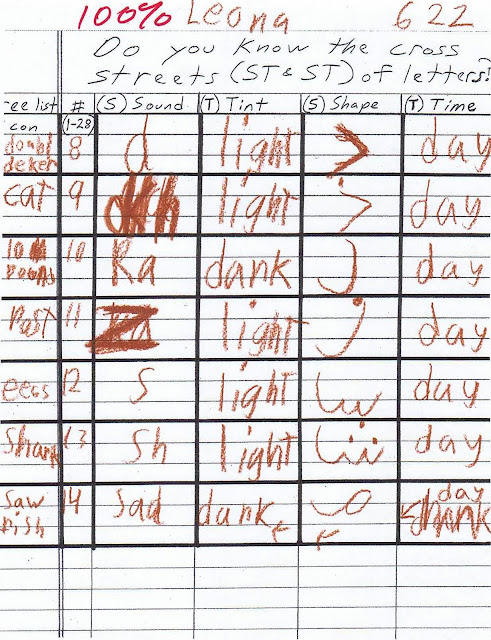 100% Leona 6 22
Do you know the cross
streets (ST & ST) of letters!
ree list # (S) Sound (T) Tint (S) Shape (T) Time
con (1-28)
doubl
deker 8 d light د day
cat 9 light ذ day
10 10 Ra dark ر day
11 light ز day
eegs 12 S light س day
Shark 13 Sh light ش day
Saw
fish 14 Sad dark ص day